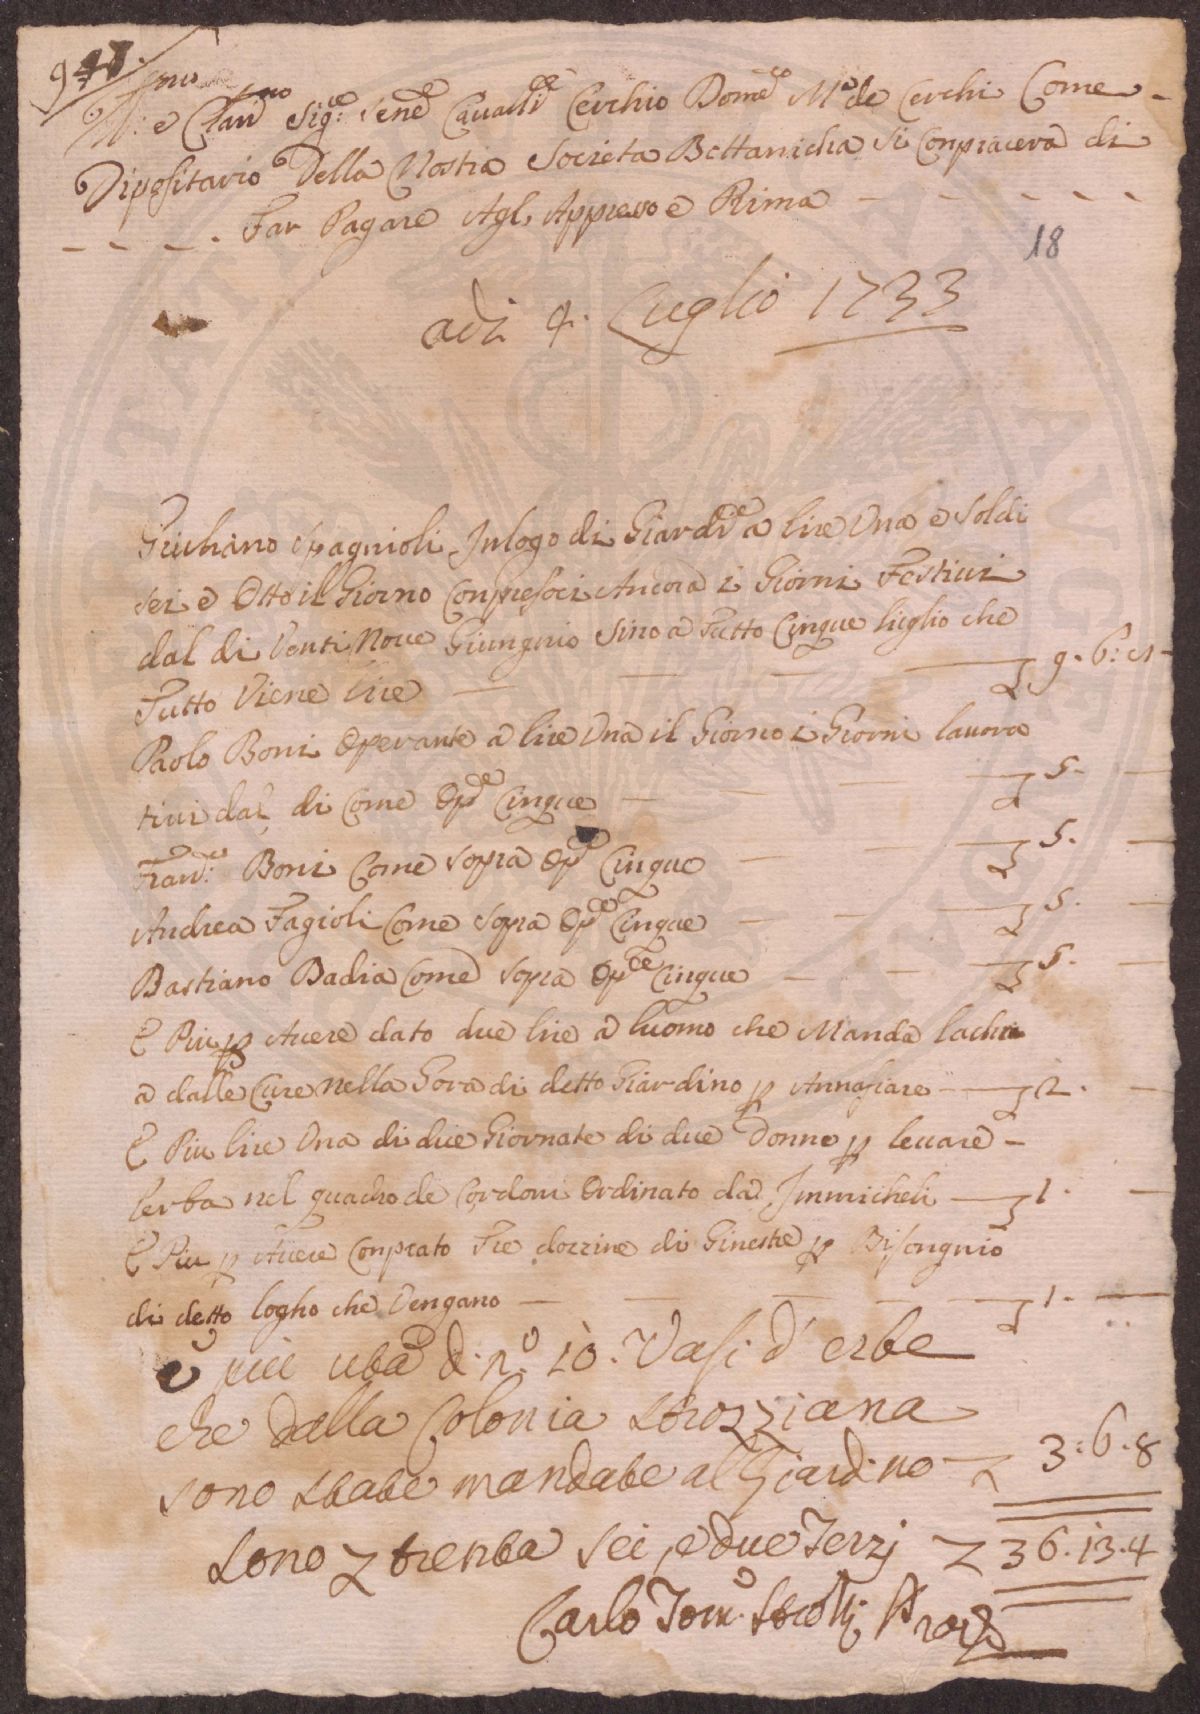 Ill:mo e Clari:mo Sig:re Sene:re Cavall:re Cerchio Dome:co M:a de Cerchi Come
Dipositario Della Nostra Societa Bottanicha Si Conpiacerà di
Far Pagare Agl, Appresso e Rima
18
adi 4. Luglio 1733
Giuliano Spagnioli Inlogo di Giard:re a lire Una e Soldi
sei e Otto il Giorno Conpresoci Ancora i Giorni Festiui
dal di Venti Noue Giungnio Sino a Tutto Cinque luglio che
Tutto Viene lire 9. 6:
Paolo Boni Operante a lire Una il Giorno i Giorni lauora
tiui dal, di Come Op:re Cinque 5.
Fran:co Boni Come sopra Op:re Cinque 5.
Andrea Fagioli Come sopra Op:re Cinque 5.
Bastiano Badia Come sopra Op:re Cinque 5.
E Piu p Auere dato due lire a luomo che Manda lachu
a dalle Cure nella Gora di detto Giardino p Annafiare 2.
E Piu lire Una di due Giornate di due Donne p leuare
lerba nel quadro de Cordoni Ordinato da Immicheli 1.
E Piu p Auere Conprato Tre dozzine di Ginestre p Bisongnio
di detto logho che Vengano 1.
e piu uta d. n.o 10. Vasi d'erbe
che dalla Colonia Strozziana
sono state mandate al Giardino 3:6.8
Sono trenta sei, e due Terzj 36.13.4
Carlo Tom:o